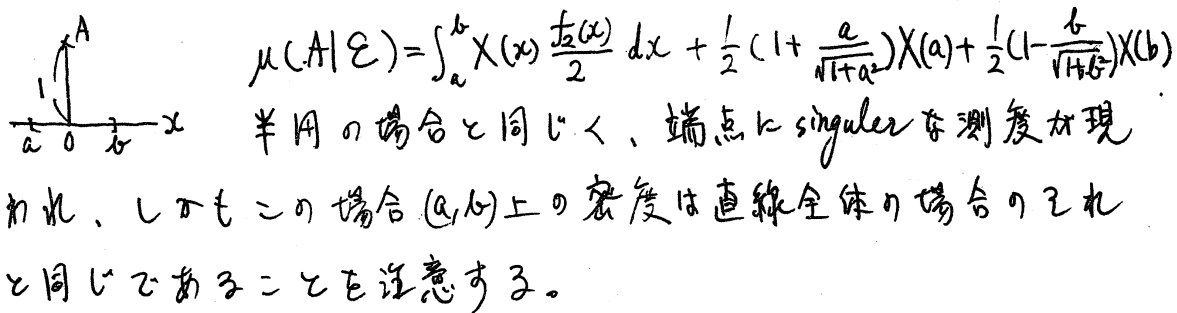 A
1
a 0 b x
μ(A|ℰ)=∫_a^b X(x) f_2(x)/2 dx + 1/2 (1+ a/√(1+a²))X(a)+ 1/2 (1- b/√(1+b²))X(b)
半円の場合と同じく、端点に singuler な測度が現
われ、しかもこの場合(a,b)上の密度は直線全体の場合のそれ
と同じであることを注意する。